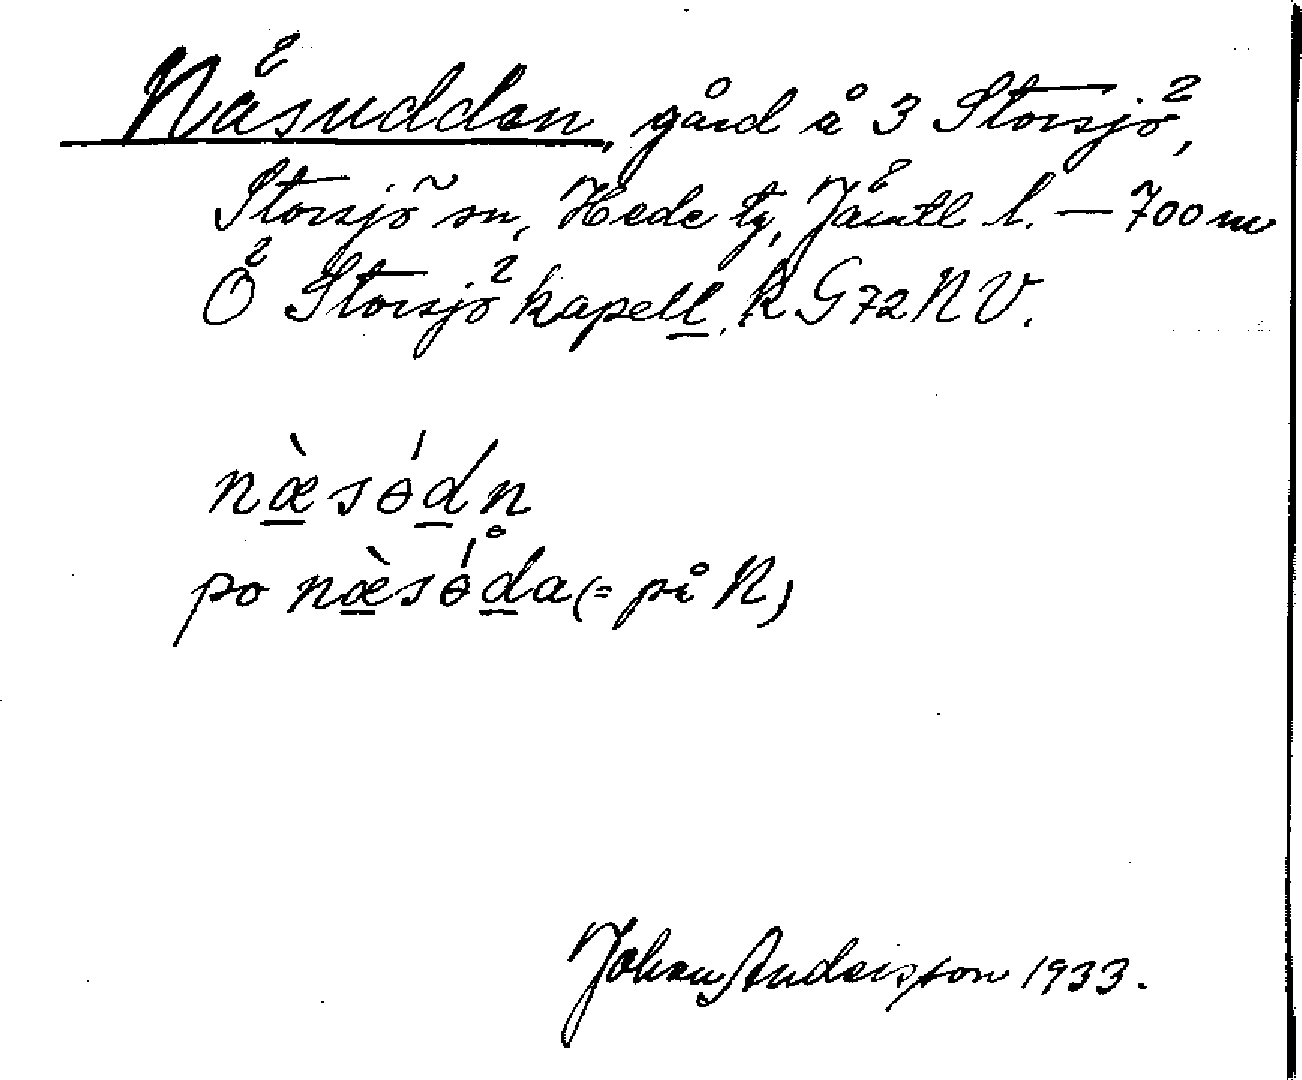 Näsudden, gård å 3 Storsjö,
Storsjö sn, Hede tg, Jämtl l. — 700 m
Ö Storsjö kapell, k G72NV.
næ̀sɵ́dn
po næ̀sɵ́da (= på N)
Johan Andersson 1933.